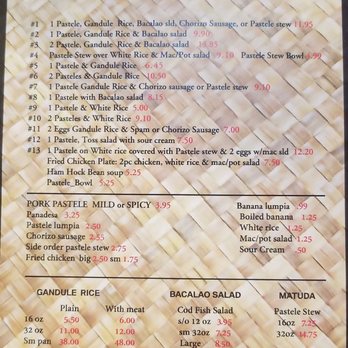 #1 1 Pastele, Gandule Rice, Bacalao sld, Chorizo Sausage, or Pastele stew 11.95
#2 1 Pastele, Gandule Rice & Bacalao salad 9.90
#3 2 Pastele, Gandule Rice & Bacalao salad
#4 Pastele Stew over White Rice & Mac/Pot salad 9.10 Pastele Stew
#5 1 Pastele & Gandule Rice 6.45
#6 2 Pasteles & Gandule Rice 10.50
#7 1 Pastele Gandule Rice & Chorizo sausage or Pastele stew 9.10
#8 1 Pastele with Bacalao salad 8.15
#9 1 Pastele & White Rice 5.00
#10 2 Pasteles & White Rice 9.10
#11 2 Eggs Gandule Rice & Spam or Chorizo Sausage 7.00
#12 1 Pastele, Toss salad with sour cream 7.50
#13 1 Pastele on White rice covered with Pastele stew & 2 eggs w/mac sld 12.20
Fried Chicken Plate: 2pc chicken, white rice & mac/pot salad 7.50
Ham Hock Bean soup 5.25
Pastele_Bowl 5.25
PORK PASTELE MILD or SPICY 3.95
Panadesa 3.25
Pastele lumpia 2.50
Chorizo sausage 2.55
Side order pastele stew 2.75
Fried chicken big 2.50 sm 1.75
Banana lumpia .99
Boiled banana 1.25
White rice 1.25
Mac/pot salad 1.25
Sour Cream .50
GANDULE RICE
Plain With meat
16 oz 5.50 6.00
32 oz 11.00 12.00
Sm pan 38.00 48.00
BACALAO SALAD
Cod Fish Salad
s/o 12 oz 3.95
sm 32oz 7.25
Large 8.50
MATUDA
Pastele Stew
16oz 7.25
32oz 14.75